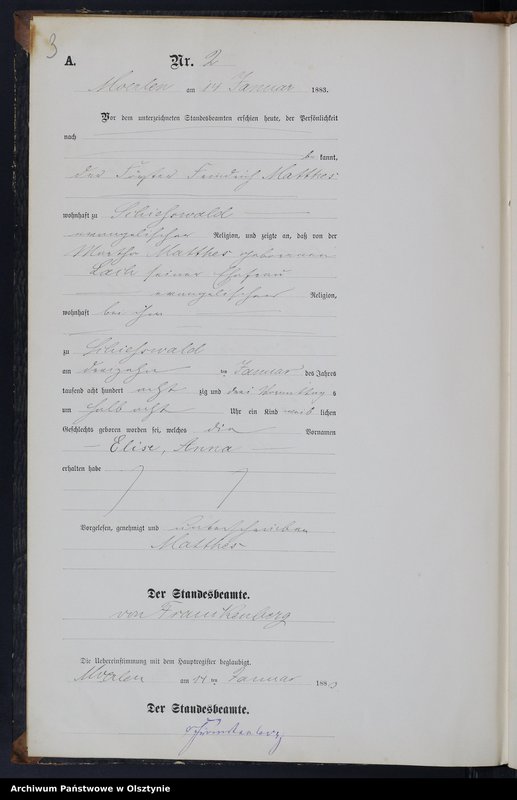 3
A. Nr. 2
Moerlen am 14 Januar 1883.
Vor dem unterzeichneten Standesbeamten erschien heute, der Persönlichkeit
nach
be kannt,
der Friedrich Matthes
wohnhaft zu Schießwald
evangelischer Religion, und zeigte an, daß von der
Martha Matthes geborenen
seiner Ehefrau
evangelischer Religion,
wohnhaft bei ihm
zu Schießwald
am dreizehn ten Januar des Jahres
tausend acht hundert acht zig und drei Vormittag s
um halb acht Uhr ein Kind weib lichen
Geschlechts geboren worden sei, welches die Vornamen
Elise, Anna
erhalten habe
Vorgelesen, genehmigt und unterschrieben
Matthes
Der Standesbeamte.
von Frankenberg
Die Uebereinstimmung mit dem Hauptregister beglaubigt.
Moerlen am 14 ten Januar 1883
Der Standesbeamte.
vFrankenberg
Archiwum Państwowe w Olsztynie